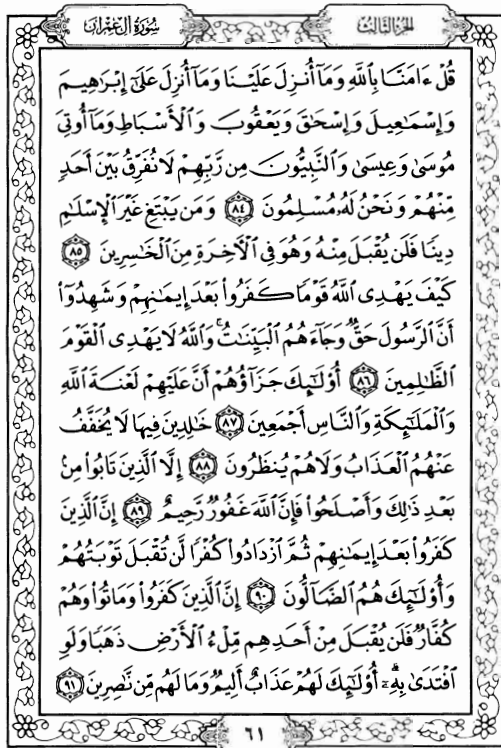 سُورَةُ آلِ عِمْرَانَ
الجُزْءُ الثَّالِثُ
قُلْ ءَامَنَّا بِٱللَّهِ وَمَآ أُنزِلَ عَلَيْنَا وَمَآ أُنزِلَ عَلَىٰٓ إِبْرَٰهِيمَ
وَإِسْمَٰعِيلَ وَإِسْحَٰقَ وَيَعْقُوبَ وَٱلْأَسْبَاطِ وَمَآ أُوتِىَ
مُوسَىٰ وَعِيسَىٰ وَٱلنَّبِيُّونَ مِن رَّبِّهِمْ لَا نُفَرِّقُ بَيْنَ أَحَدٍ
مِّنْهُمْ وَنَحْنُ لَهُۥ مُسْلِمُونَ ٨٤ وَمَن يَبْتَغِ غَيْرَ ٱلْإِسْلَٰمِ
دِينًا فَلَن يُقْبَلَ مِنْهُ وَهُوَ فِى ٱلْءَاخِرَةِ مِنَ ٱلْخَٰسِرِينَ ٨٥
كَيْفَ يَهْدِى ٱللَّهُ قَوْمًا كَفَرُوا۟ بَعْدَ إِيمَٰنِهِمْ وَشَهِدُوٓا۟
أَنَّ ٱلرَّسُولَ حَقٌّ وَجَآءَهُمُ ٱلْبَيِّنَٰتُ ۚ وَٱللَّهُ لَا يَهْدِى ٱلْقَوْمَ
ٱلظَّٰلِمِينَ ٨٦ أُو۟لَٰٓئِكَ جَزَآؤُهُمْ أَنَّ عَلَيْهِمْ لَعْنَةَ ٱللَّهِ
وَٱلْمَلَٰٓئِكَةِ وَٱلنَّاسِ أَجْمَعِينَ ٨٧ خَٰلِدِينَ فِيهَا لَا يُخَفَّفُ
عَنْهُمُ ٱلْعَذَابُ وَلَا هُمْ يُنظَرُونَ ٨٨ إِلَّا ٱلَّذِينَ تَابُوا۟ مِنۢ
بَعْدِ ذَٰلِكَ وَأَصْلَحُوا۟ فَإِنَّ ٱللَّهَ غَفُورٌ رَّحِيمٌ ٨٩ إِنَّ ٱلَّذِينَ
كَفَرُوا۟ بَعْدَ إِيمَٰنِهِمْ ثُمَّ ٱزْدَادُوا۟ كُفْرًا لَّن تُقْبَلَ تَوْبَتُهُمْ
وَأُو۟لَٰٓئِكَ هُمُ ٱلضَّآلُّونَ ٩٠ إِنَّ ٱلَّذِينَ كَفَرُوا۟ وَمَاتُوا۟ وَهُمْ
كُفَّارٌ فَلَن يُقْبَلَ مِنْ أَحَدِهِم مِّلْءُ ٱلْأَرْضِ ذَهَبًا وَلَوِ
ٱفْتَدَىٰ بِهِۦٓ ۗ أُو۟لَٰٓئِكَ لَهُمْ عَذَابٌ أَلِيمٌ وَمَا لَهُم مِّن نَّٰصِرِينَ ٩١
٦١